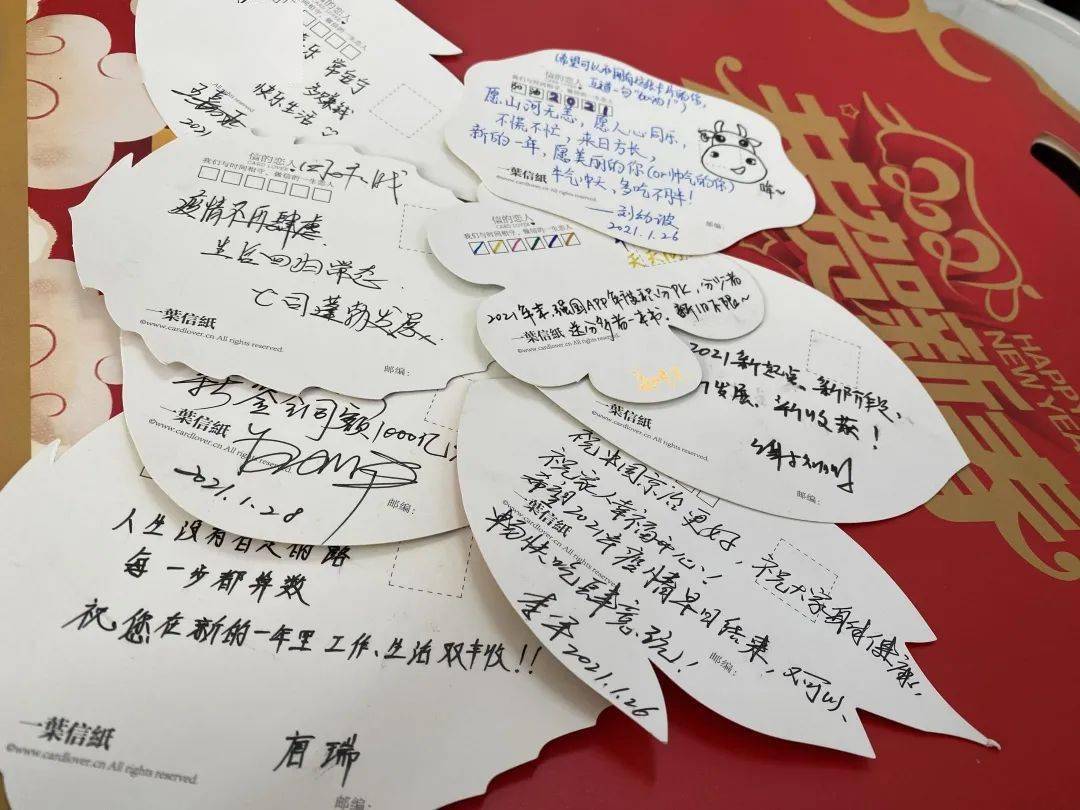 常留宁
快乐生活♡
2021
All rights reserved.
信的恋人
CARD LOVER
我们与时间相守，做信的一生恋人
疫情不再肆虐
生活回归常态
公司蓬勃发展
一葉信紙
©www.cardlover.cn All rights reserved.
邮编：
互道一句
2021
愿山河无恙，愿人心同乐，
不慌不忙，来日方长，
新的一年，愿美丽的你(or帅气的你)
牛气冲天，多吃不胖！
哞~
一葉信紙
©www.cardlover.cn All rights reserved.
邮编：
2021.1.26
信的恋人
CARD LOVER
我们与时间相守，做信的一生恋人
2021年末强国APP年度积分PK，分少者
送分多者一本书。
一葉信紙
©www.cardlover.cn All rights reserved.
2021新起点、新阶段、
发展、新收获！
一葉信紙
©www.cardlover.cn All rights reserved.
邮编：
1000亿
一葉信紙
©www.cardlover.cn All rights reserved.
2021.1.28
邮编：
更好，祝大家身体健康，
祝家人幸福开心！
希望2021年疫情早日结束，又可以
畅快吃肆意玩！
一葉信紙
©www.cardlover.cn All rights reserved.
邮编：
2021.1.26
人生没有白走的路
每一步都算数
祝您在新的一年里工作、生活双丰收!!
一葉信紙
©www.cardlover.cn All rights reserved.
邮编：
恭贺新年
2021
HAPPY
NEW YEAR